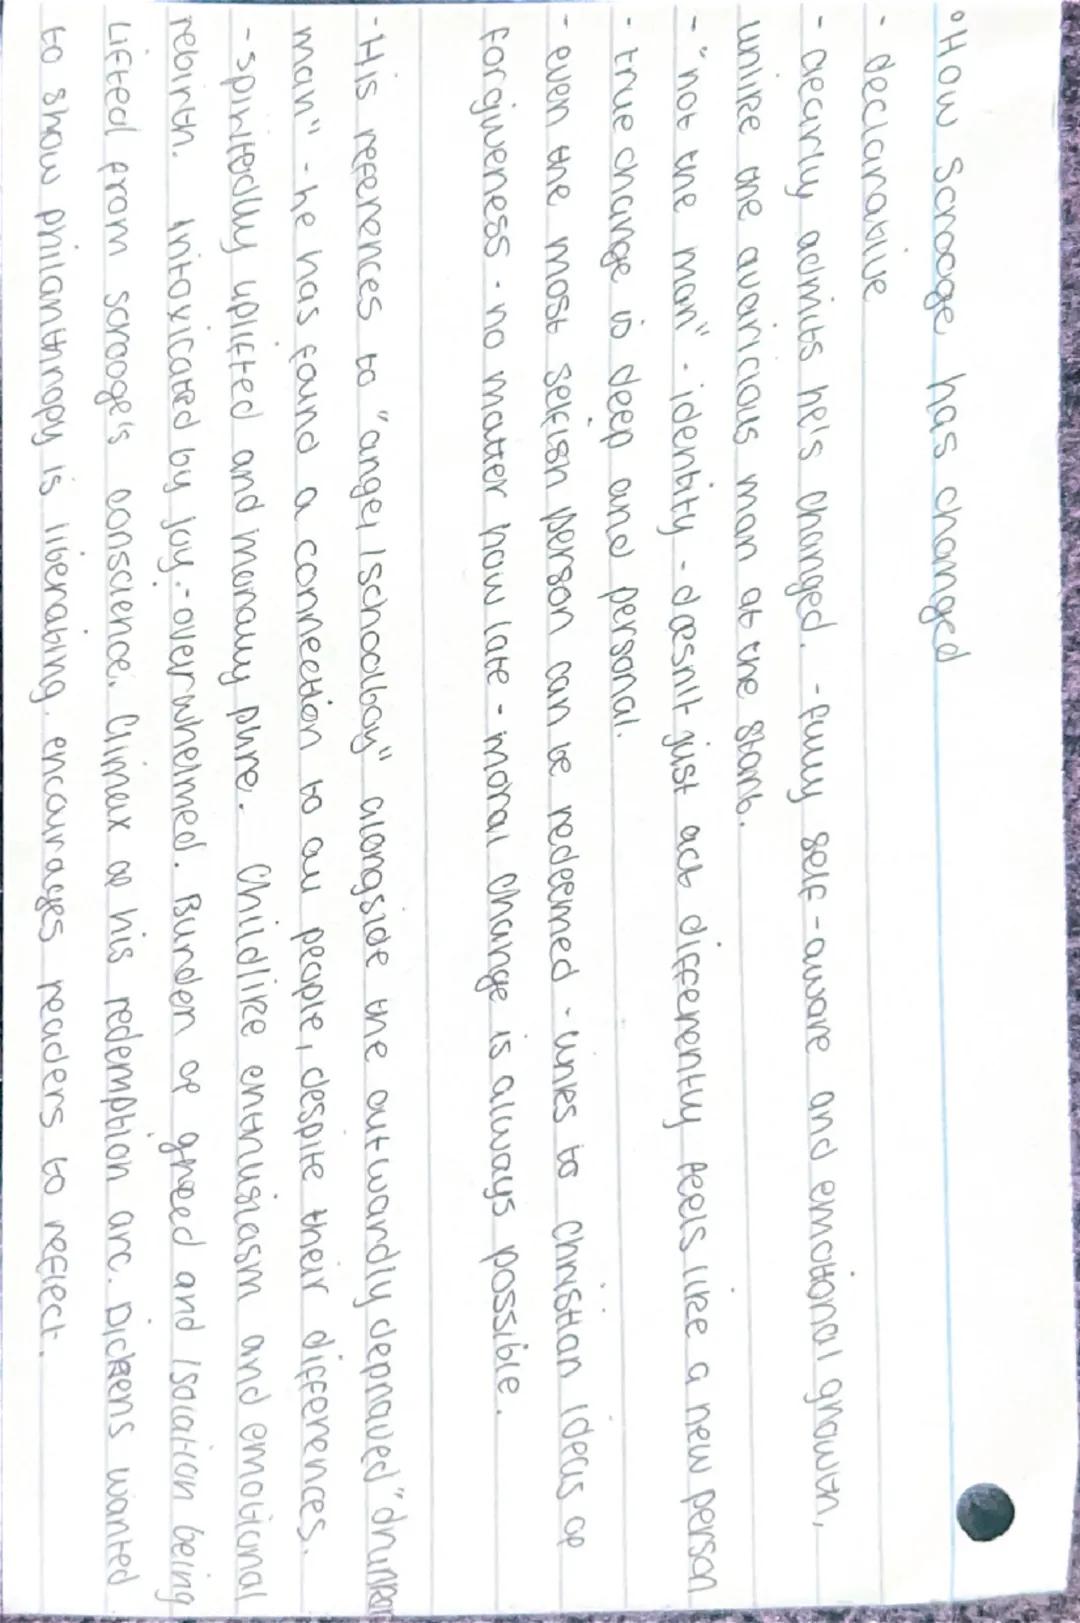 °How Scrooge has changed
- declarative
- clearly admits he's changed. - fully self-aware and emotional growth,
unlike the avaricious man at the start.
- "not the man" - identity - doesn't just act differently feels like a new person
- true change is deep and personal.
- even the most selfish person can be redeemed - links to Christian ideas of
forgiveness - no matter how late - moral change is always possible.
- His references to "angel / schoolboy" alongside the outwardly depraved "drunken
man" - he has found a connection to all people, despite their differences.
- spiritedly uplifted and morally pure. Childlike enthusiasm and emotional
rebirth. Intoxicated by joy. - overwhelmed. Burden of greed and isolation being
Lifted from scrooge's conscience. Climax of his redemption arc. Dickens wanted
to show philanthropy is liberating. encourages readers to reflect.